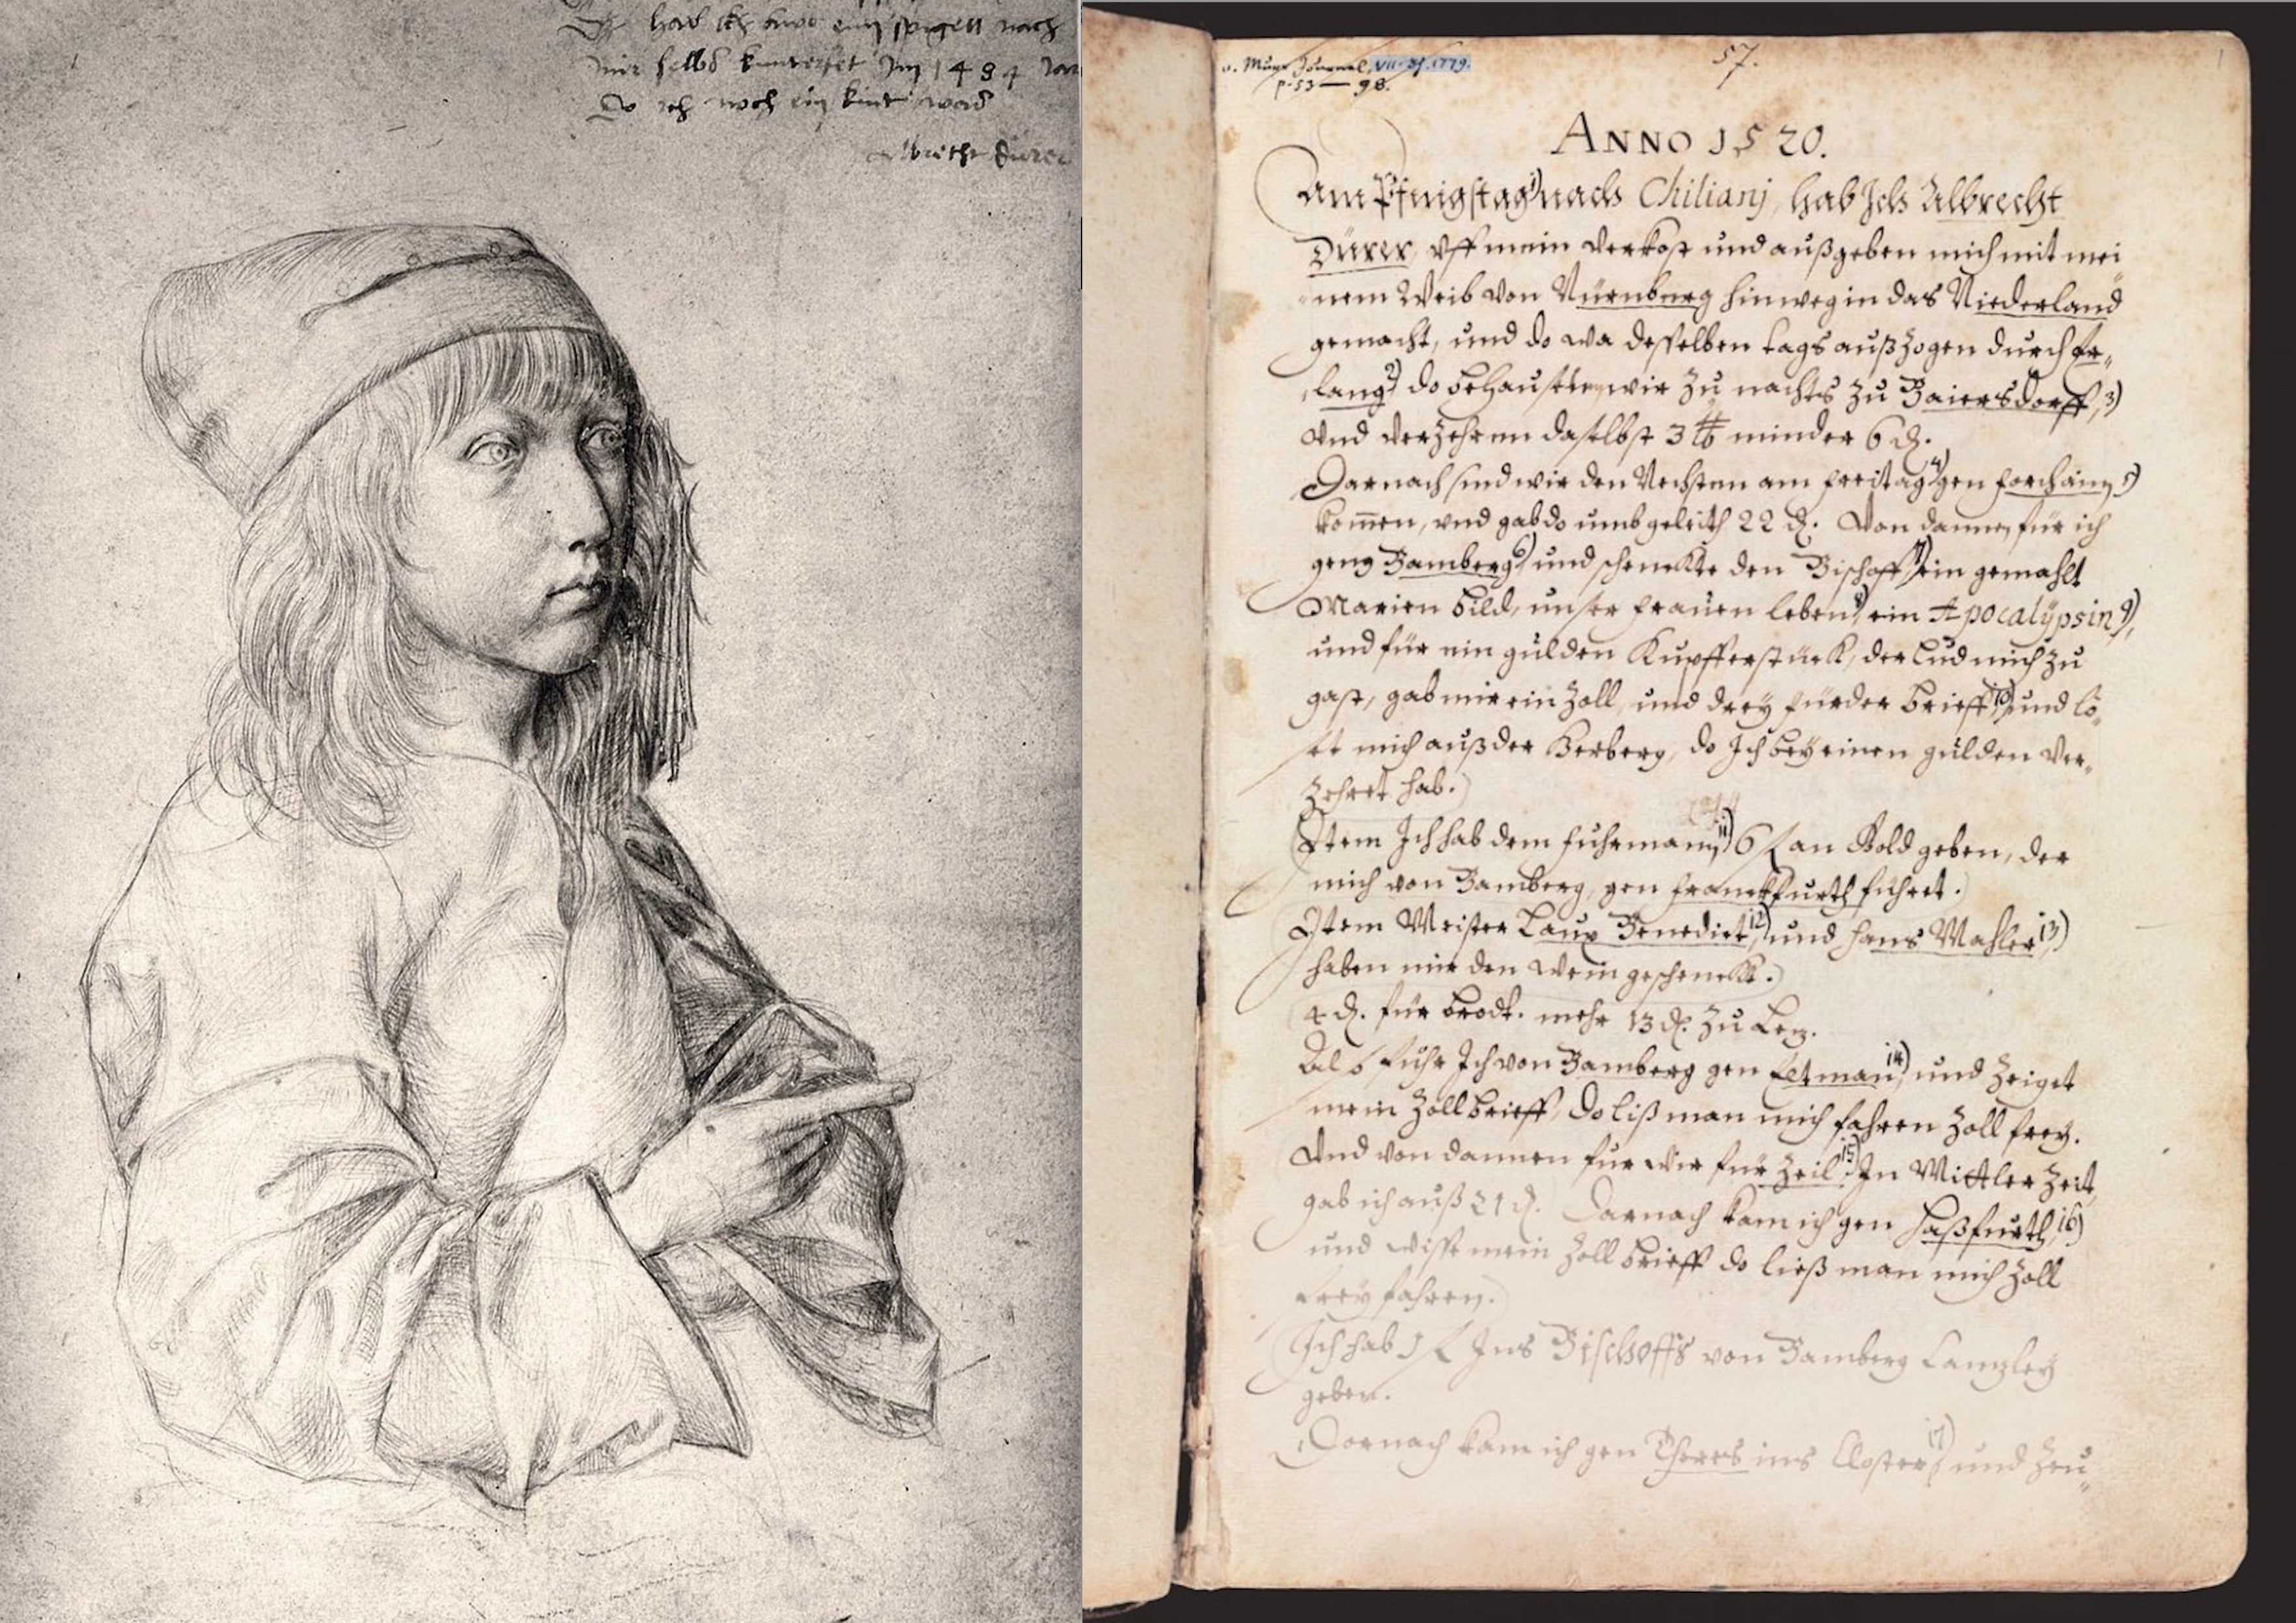 Dz hab ich aws eim spigell nach
mir selbs kunterfet Im 1484 Jar
Do ich noch ein kint was
Albrecht Dürer
v. Murr Journal, VII. 1779.
p. 53 — 98.
57.
1
ANNO 1520.
Am Pfingstag 1) nach Chilianj, hab Jch Albrecht
Dürer, vff mein verkost und außgeben mich mit mei
nem Weib von Nürnberg hinweg in das Niederland
gemacht, und do wa desselben tags außzogen durch Er„
lang 2) do behausten wir zu nachts zu Baiersdorff, 3)
Vnd verzehren daselbst 3 ℔ minder 6 ₰.
Darnach sind wir den Nechsten am freitag 4) gen forchaim 5)
komen, vnd gab do umb geleith 22 ₰. Von dannen für ich
geng Bamberg 6) und schenckte den Bischoff 7) ein gemahlt
Marien bild, unser frauen leben 8) ein Apocalÿpsin 9),
und für ein gulden Kupfferstück, der lud mich zu
gast, gab mir ein Zoll und dreÿ fürder brieff 10) und lö„
st mich auß der Herberg, do Jch beÿ einen gulden ver„
Zehret hab.
Jtem Jch hab dem fuhrmann 11) 6 f an Gold geben, der
mich von Bamberg, gen franckfurth führet.
Jtem Meister Laux Benedict 12) und Hans Mahler 13)
haben mir den wein geschenckt.
4 ₰. für brodt. mehr 13 ₰. zu Letz.
Also fuhr Jch von Bamberg gen Eltman 14) und Zeiget
mein Zollbrieff, do liß man mich fahren Zoll freÿ.
Vnd von dannen fur wir für Zeil 15) Jn Mittler Zeit
gab ich auß 21 ₰. Darnach kam ich gen Haßfurth 16)
und wiste mein Zollbrieff do ließ man mich Zoll
freÿ fahren.
Jch hab 1 f Jns Bischoffs von Bamberg Canzleÿ
geben.
Darnach kam ich gen Theres ins Closter 17) und Zeu„